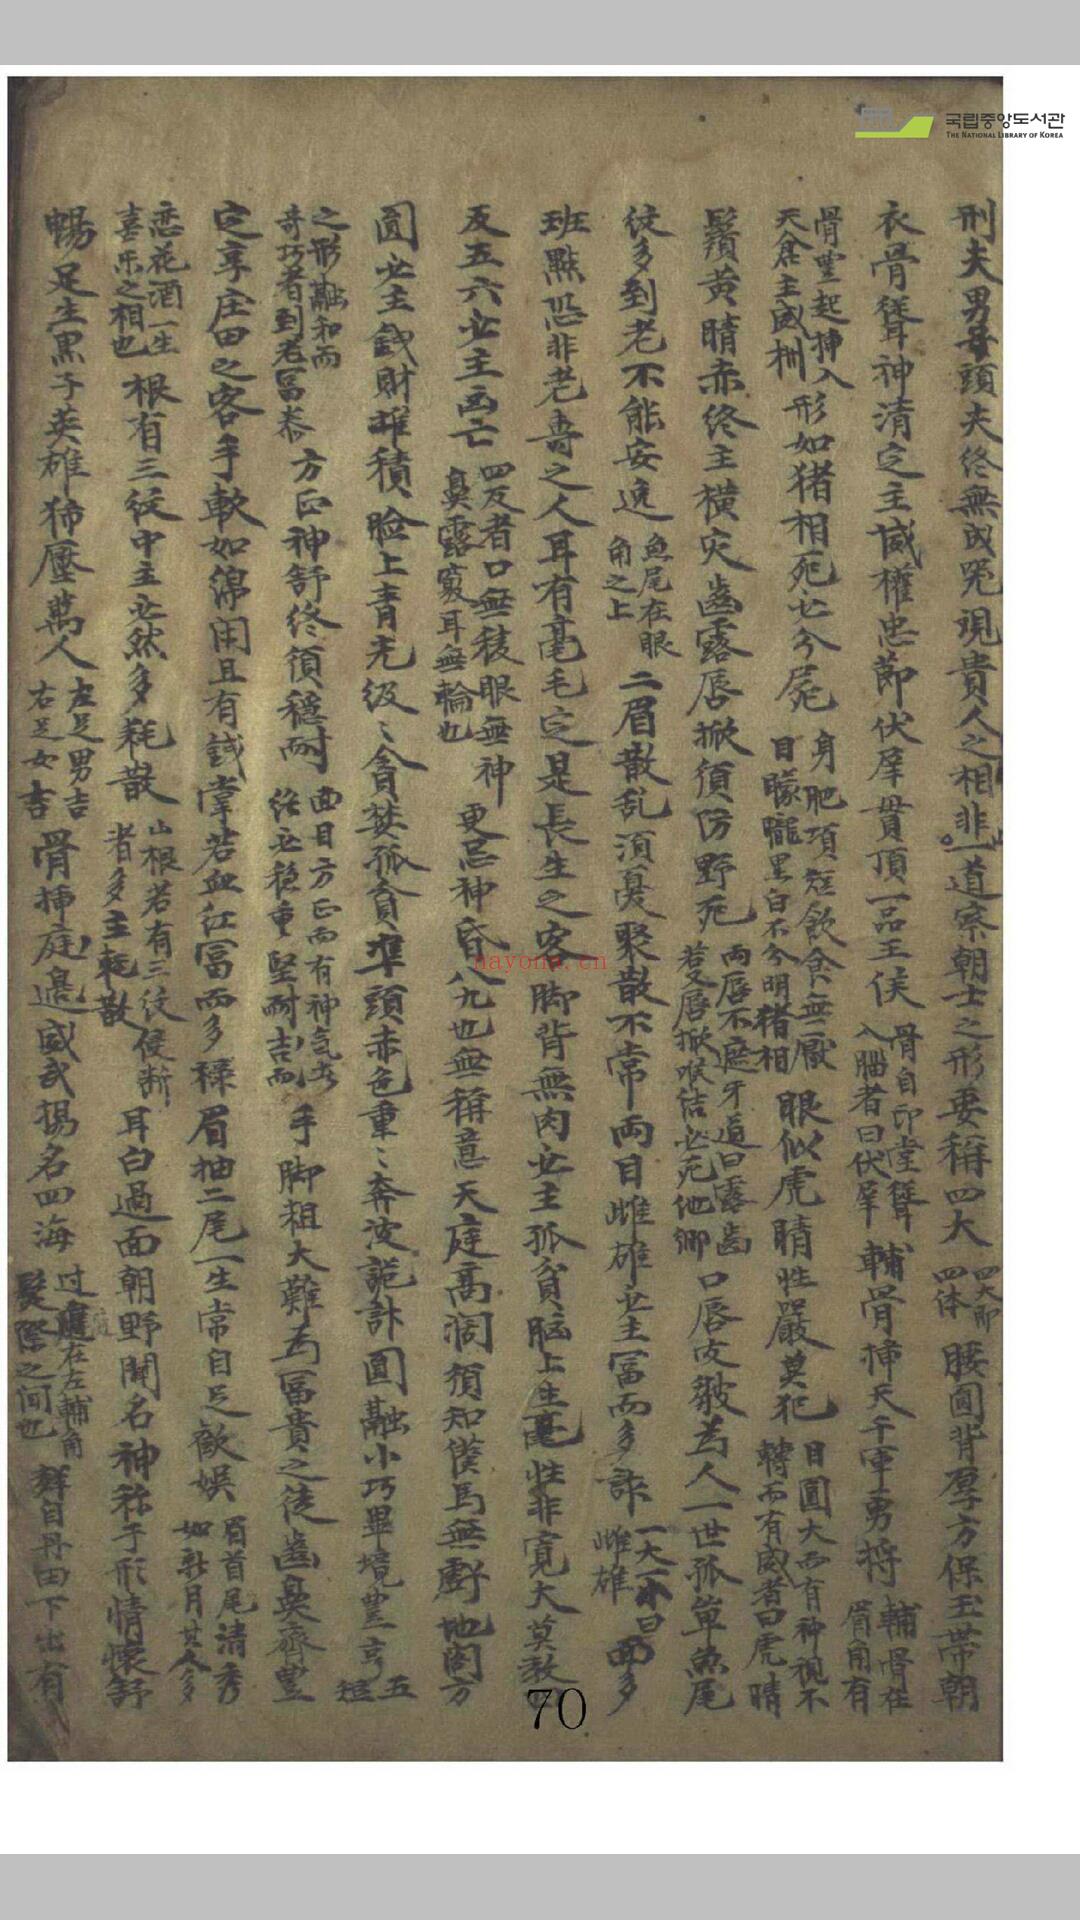 국립중앙도서관
THE NATIONAL LIBRARY OF KOREA
刑夫男子頭夫終無成児現貴人之相非一道察朝士之形要稱四大四大即四体腰圓背厚方保玉帯朝
衣骨聳神清定主威權忠節伏犀貫頂一品王侯骨自印堂聳入腦者曰伏犀輔骨揷天千軍勇将輔骨在眉角有
骨豊起揷入天倉主威形如猪相死必分屍身肥項短飲食無厭目朦朧黒白不分明猪相眼似虎睛性嚴莫犯目圓大而有神視不轉而有威者曰虎睛
鬚黄睛赤終主横灾齒露唇掀須防野死兩唇不遮牙道曰露齒若又唇掀喉结必死他鄉口唇皮皺為人一世孤单魚尾
紋多到老不能安逸魚尾在眼角之上二眉散乱須憂聚散不常両目雌雄必主冨而多詐一大一小曰雌雄面多
班點恐非老壽之人耳有毫毛定是長生之客脚背無肉必主孤貧脳上生毫性非寛大莫教四
反五六必主凶亡四反者口無稜眼無神鼻露竅耳無輪也更忌神昏八九也無稱意天庭高濶須知僕馬無虧地閣方
圓必主錢財堆積脸上青光级〻貪婪孤貧準頭赤色重〻奔波詭計圓融小巧畢境豊亨五
之形融和而奇巧者到老冨泰方正神舒終須穩耐面目方正而有神气者終必穩重堅耐吉而手脚粗大難為冨貴之徒齒鼻齊豊
定享庄田之客手軟如綿閑且有錢掌若血红冨而多禄眉抽二尾一生常自足歡娯眉首尾清秀如新月其人多
恋花酒一生喜乐之相也根有三纹中主必然多耗散山根若有三纹侵断者多主耗散耳白過面朝野聞名神称于形情懷舒
暢足生黒子英雄獨壓萬人左足男吉右足女吉骨揷庭邉威武揚名四海过庭在左輔角髮際之间也鮮自丹田下出有
nayona.cn
70